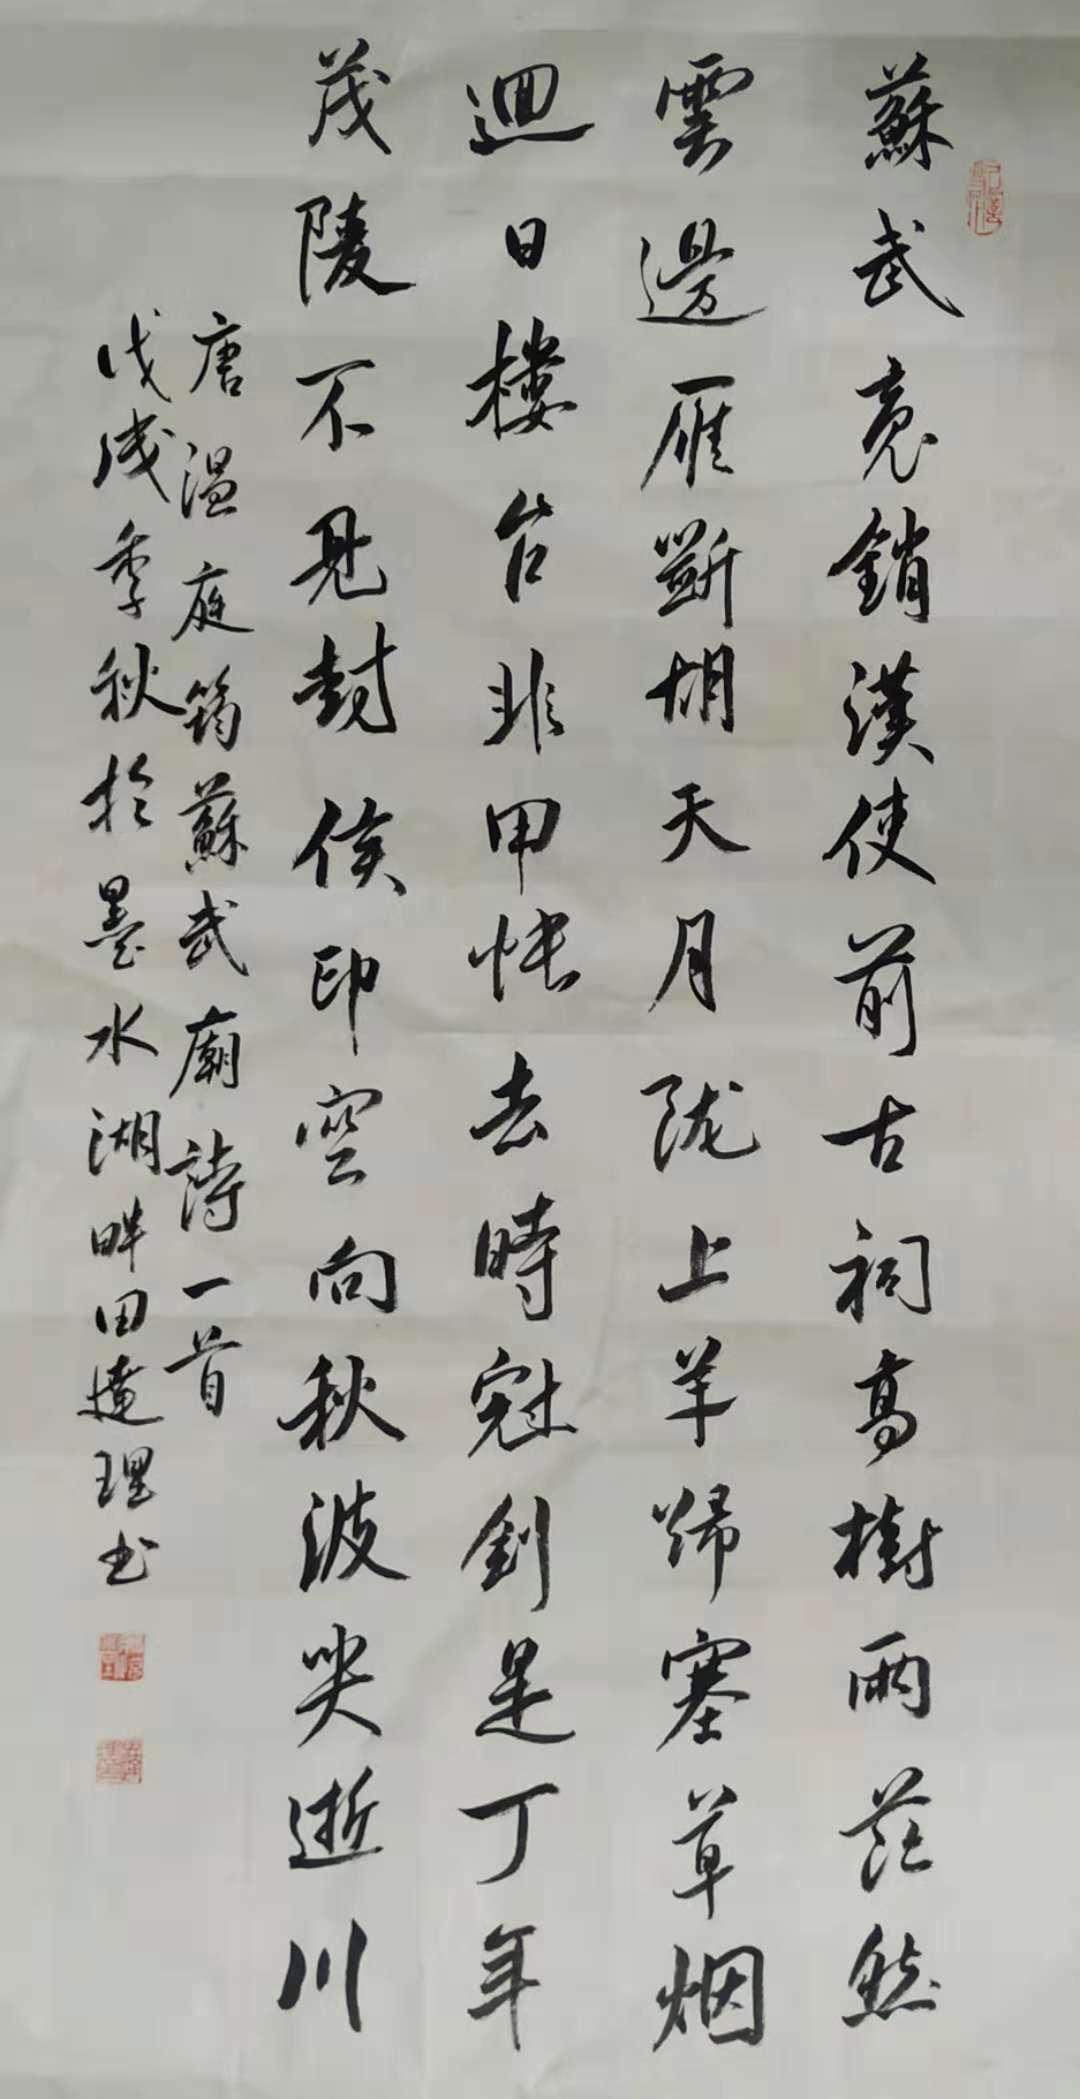 蘇武䰟銷漢使前古祠高樹兩茫然
雲邊雁斷胡天月陇上羊歸塞草烟
迴日樓台非甲帳去時冠劍是丁年
茂陵不見封侯印空向秋波哭逝川
唐溫庭筠蘇武廟詩一首
戊戌季秋於墨水湖畔田達理书